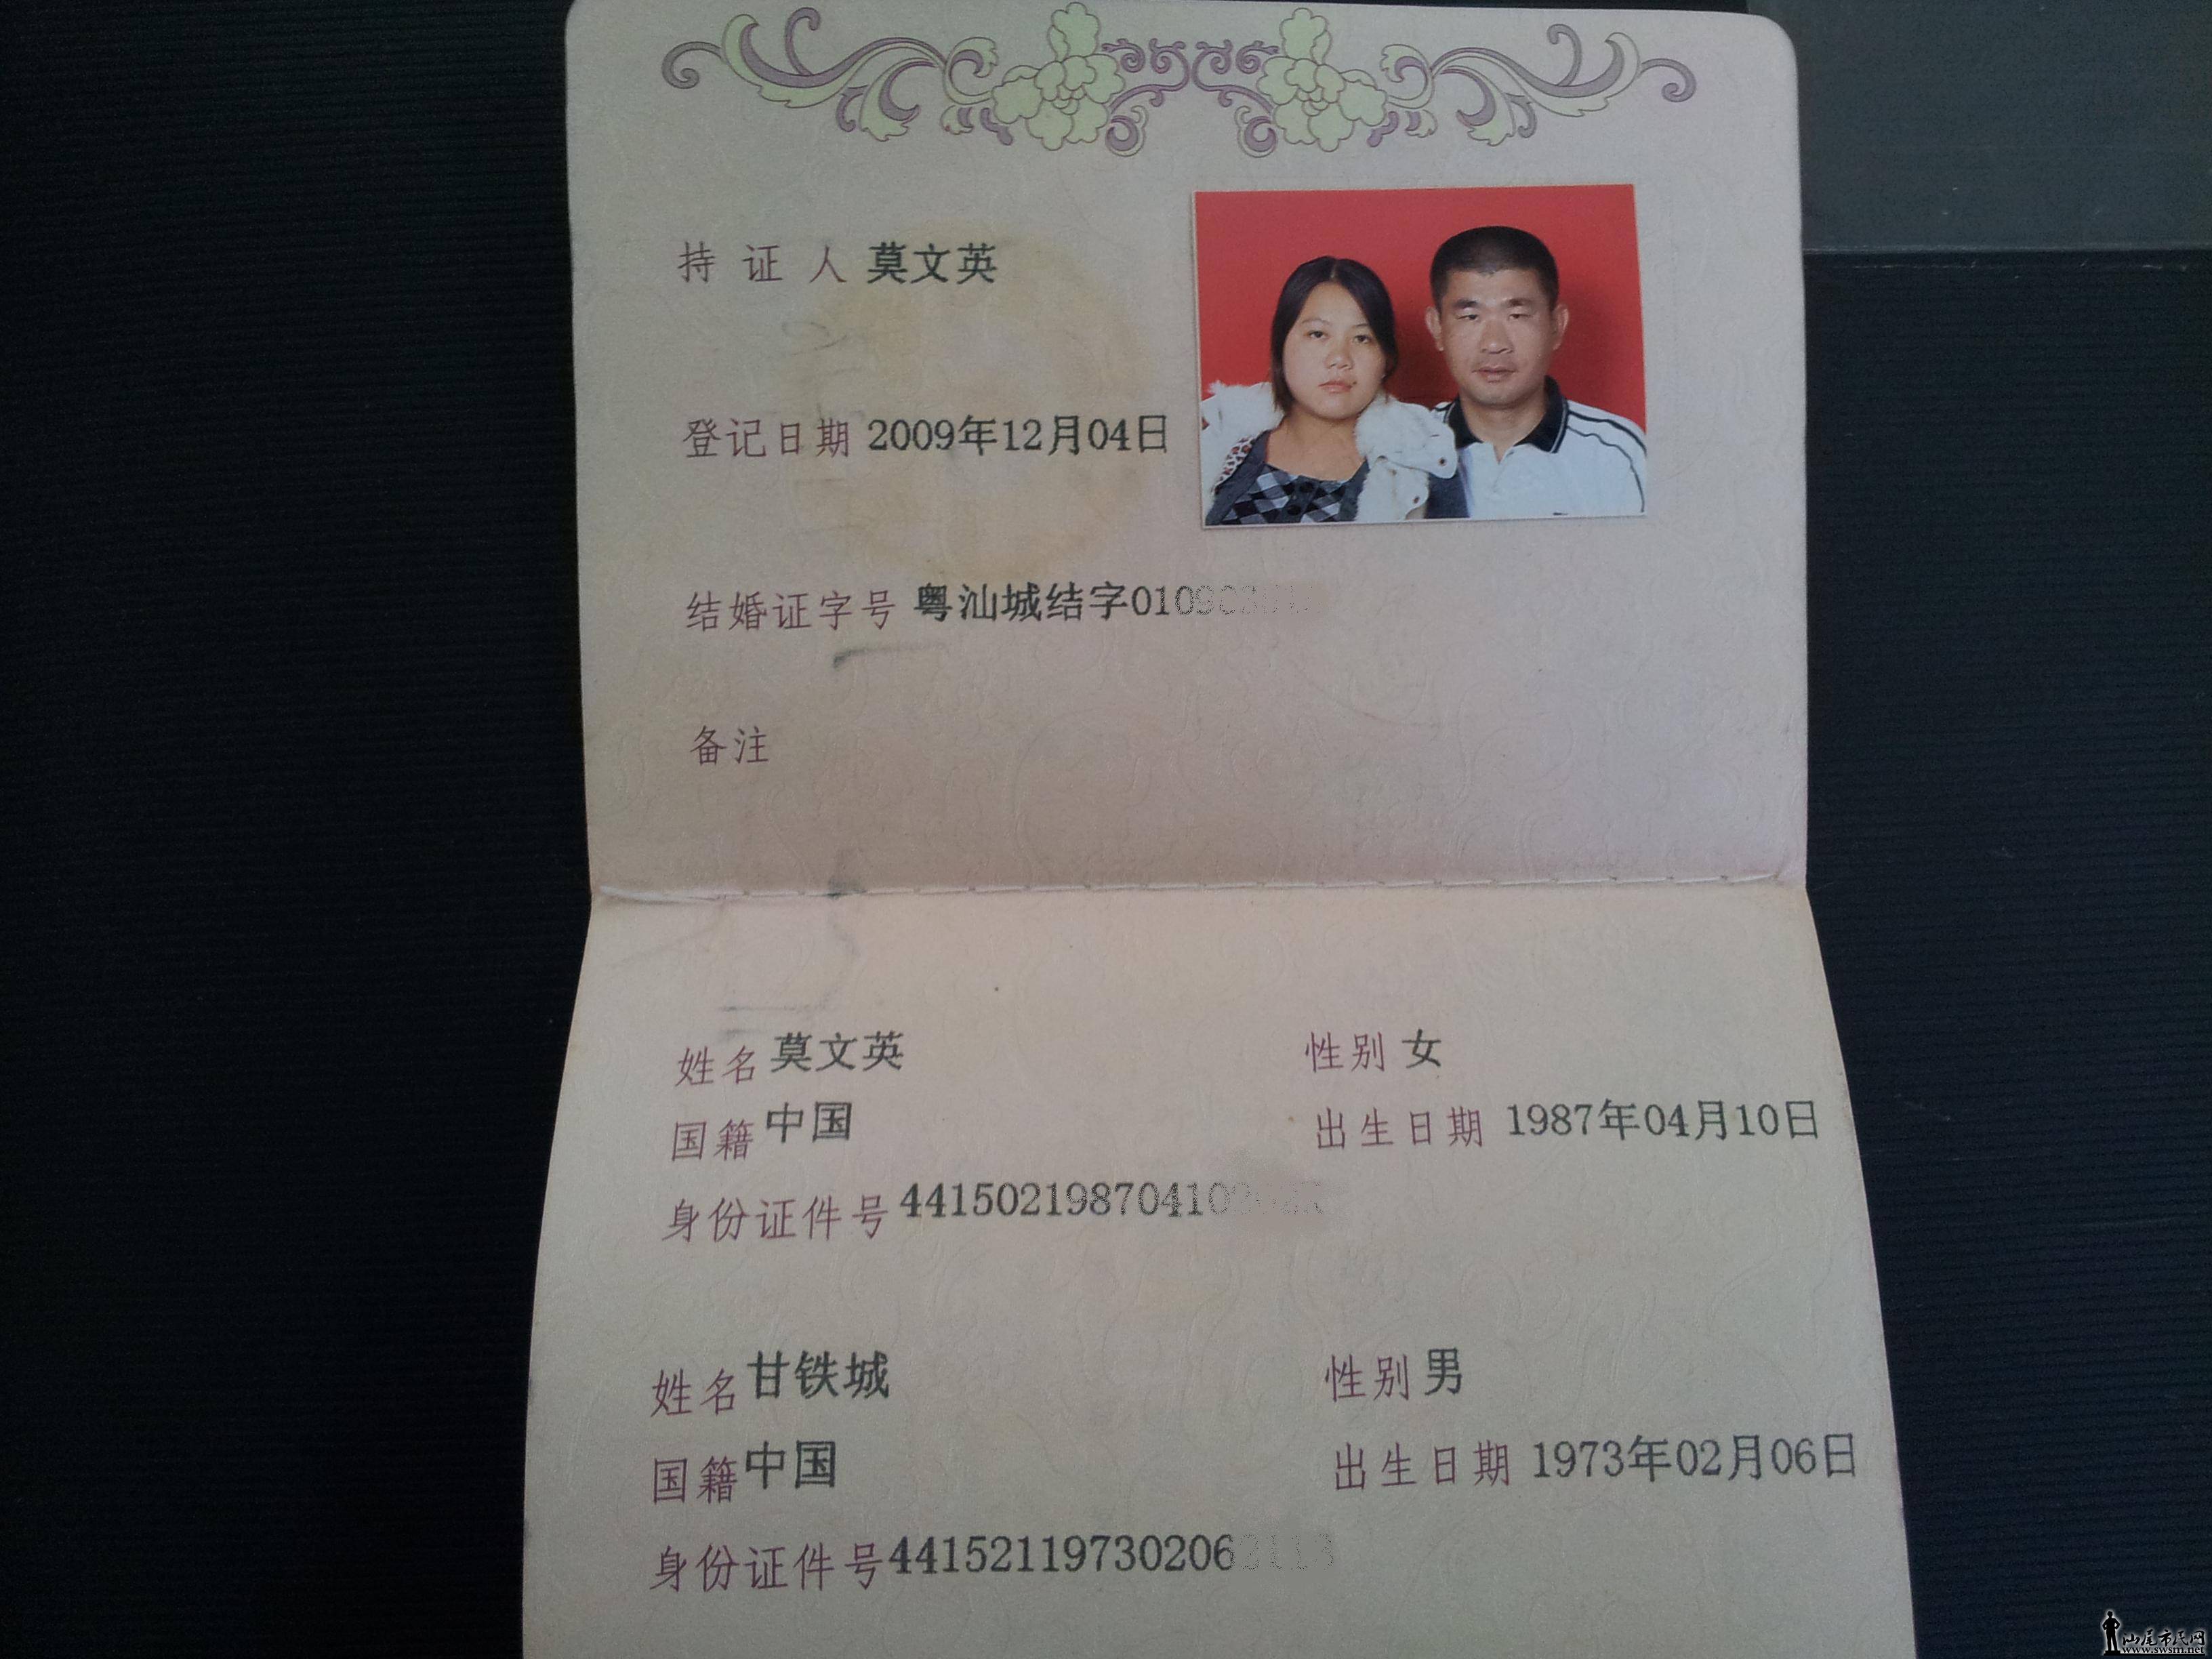 持证人 莫文英
登记日期 2009年12月04日
结婚证字号 粤汕城结字010
备注
姓名 莫文英 性别 女
国籍 中国 出生日期 1987年04月10日
身份证件号 44150219870410
姓名 甘铁城 性别 男
国籍 中国 出生日期 1973年02月06日
身份证件号 44152119730206
汕尾市民网
www.swsm.net